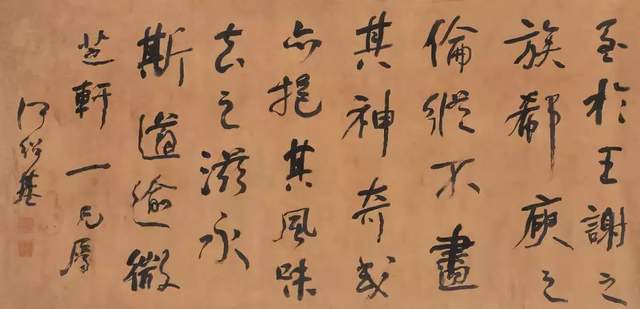 至於王謝之
族郗庾之
倫縱不盡
其神奇或
亦挹其風味
去之滋永
斯道逾微
芝軒一兄屬
何紹基